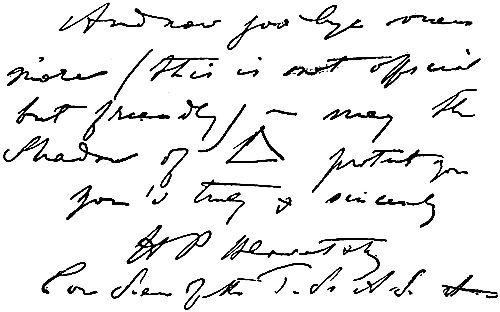 And now good bye once
more (this is not official
but friendly) – may the
Shadow of △ protect you
you's truly & sincerely
HP Blavatsky
Cor Secr of the T. S. &